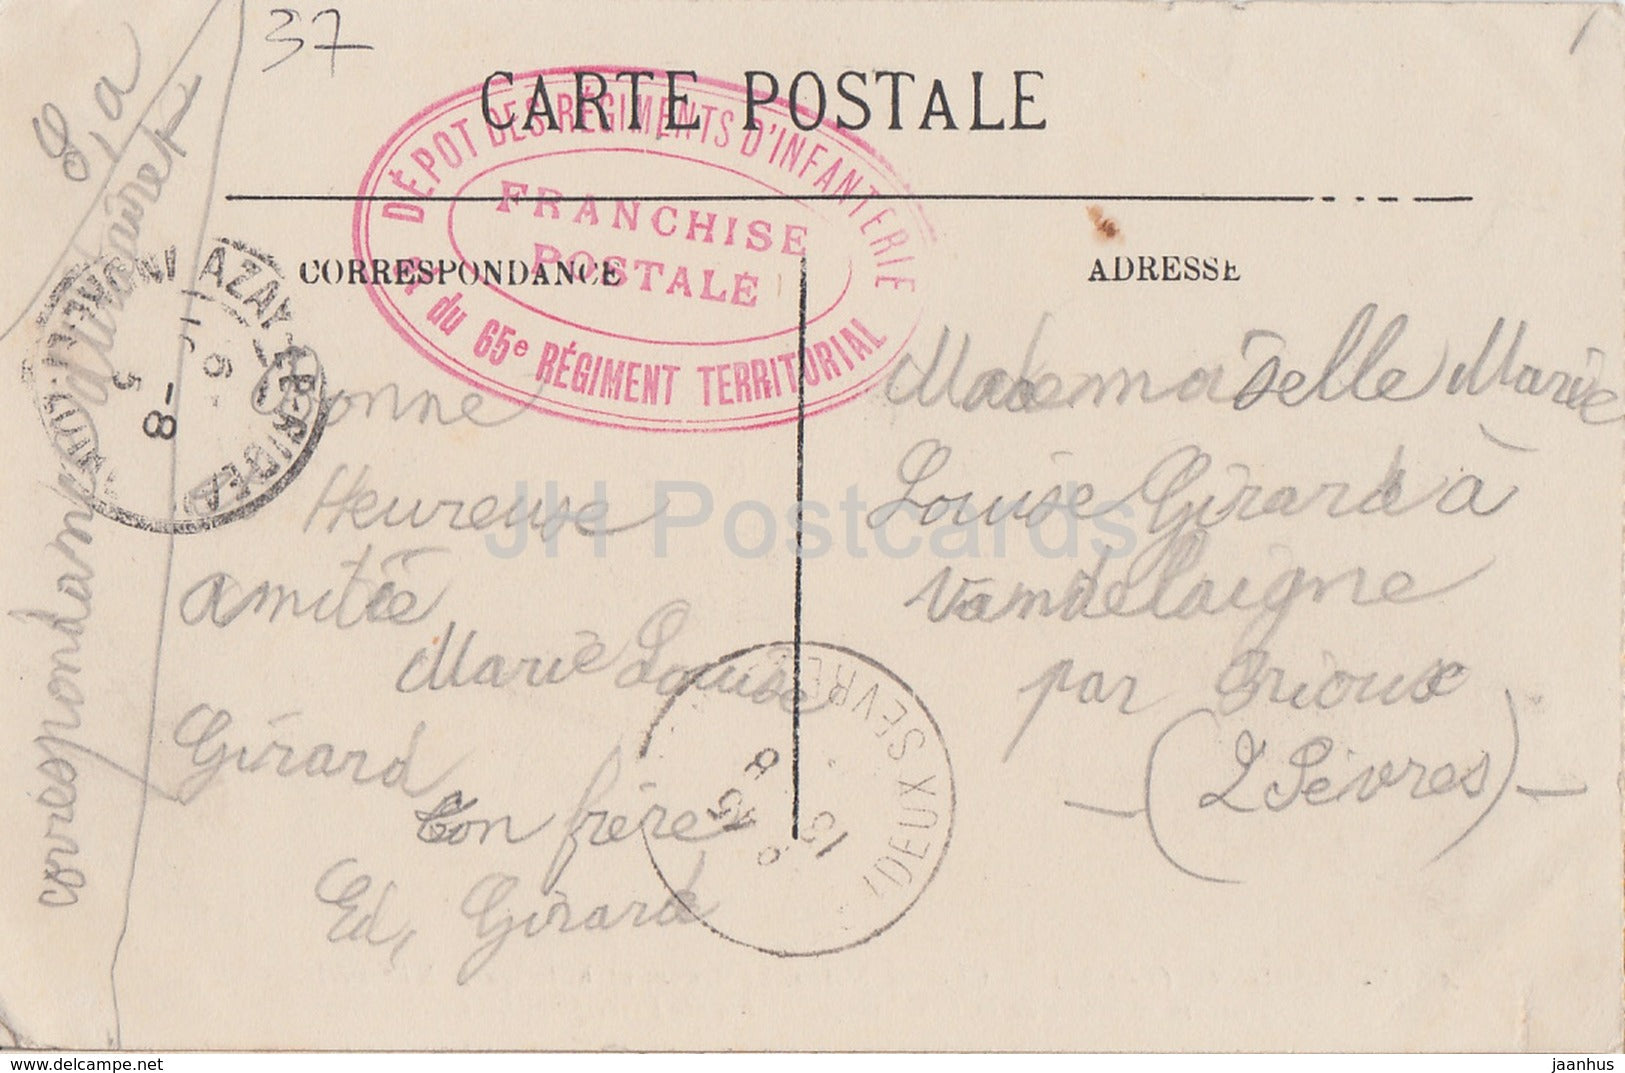 37
CARTE POSTALE
DÉPOT DES RÉGIMENTS D'INFANTERIE
FRANCHISE
POSTALE
du 65e RÉGIMENT TERRITORIAL
CORRESPONDANCE
ADRESSE
La
correspondance militaire
AZAY-LE-RIDEAU
INDRE-ET-LOIRE
8-5
Bonne
Heureuse
amitiée
Marie Louise
Girard
Ton frère
Ed, Girard
Mademaiselle Marie
Louise Girard à
Vandelaigne
par Brioux
(2 Sèvres)
(DEUX SEVRES)
JH Postcards
delcampe.net
jaanhus